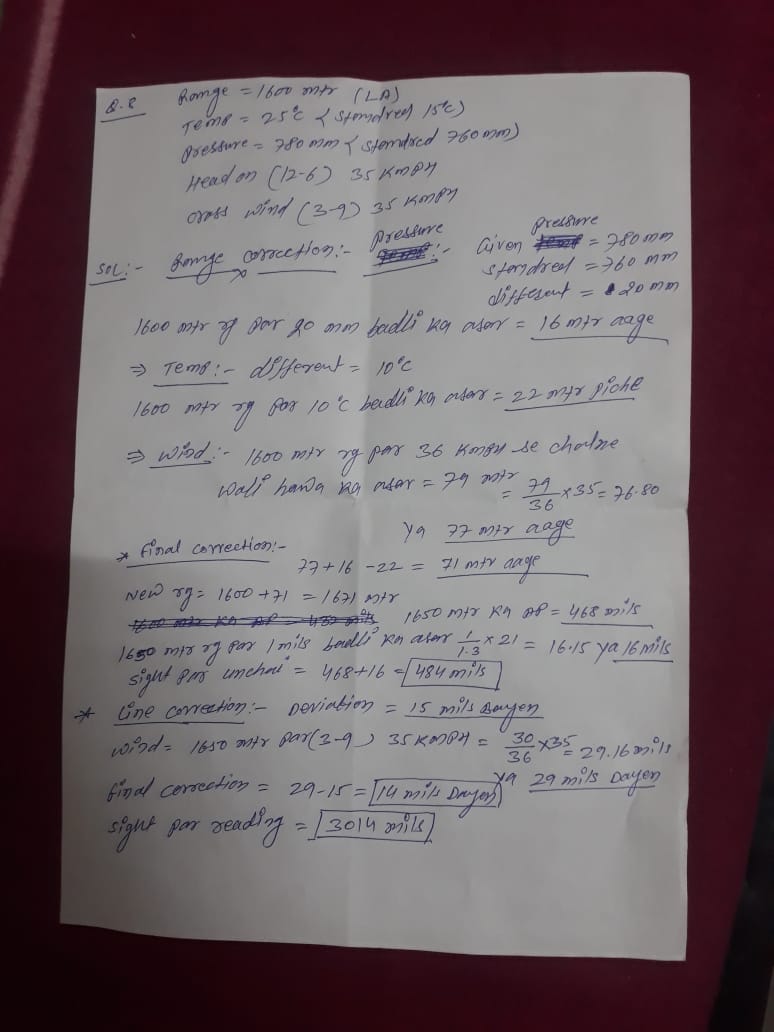 Q.8 Range = 1600 mtr (LA)
Temp = 25°C { Stemdred 15°C)
Pressure = 780 mm { Stemdred 760mm)
Head on (12-6) 35 KMPH
Cross wind (3-9) 35 KMPH
Sol:- Range Correction:- Pressure :- Given Pressure = 780 mm
Stemdred = 760 mm
different = 20 mm
1600 mtr rg par 20 mm badli ka asar = 16 mtr aage
⇒ Temp:- different = 10°C
1600 mtr rg par 10°C badli ka asar = 22 mtr piche
⇒ Wind:- 1600 mtr rg par 36 KMPH se chalne
wali hawa ka asar = 79 mtr
= 79/36 x 35 = 76.80
Ya 77 mtr aage
* Final correction:-
77+16-22 = 71 mtr aage
New rg = 1600 + 71 = 1671 mtr
1650 mtr ka AP = 468 mils
1650 mtr rg par 1 mils badli ka asar 1/1.3 x 21 = 16.15 ya 16 mils
Sight par unchai = 468+16 = 484 mils
* Line correction:- Deviation = 15 mils Bayen
Wind = 1650 mtr par (3-9) 35 KMPH = 30/36 x 35 = 29.16 mils
Ya 29 mils Dayen
Final correction = 29-15 = 14 mils Dayen
Sight par reading = 3014 mils